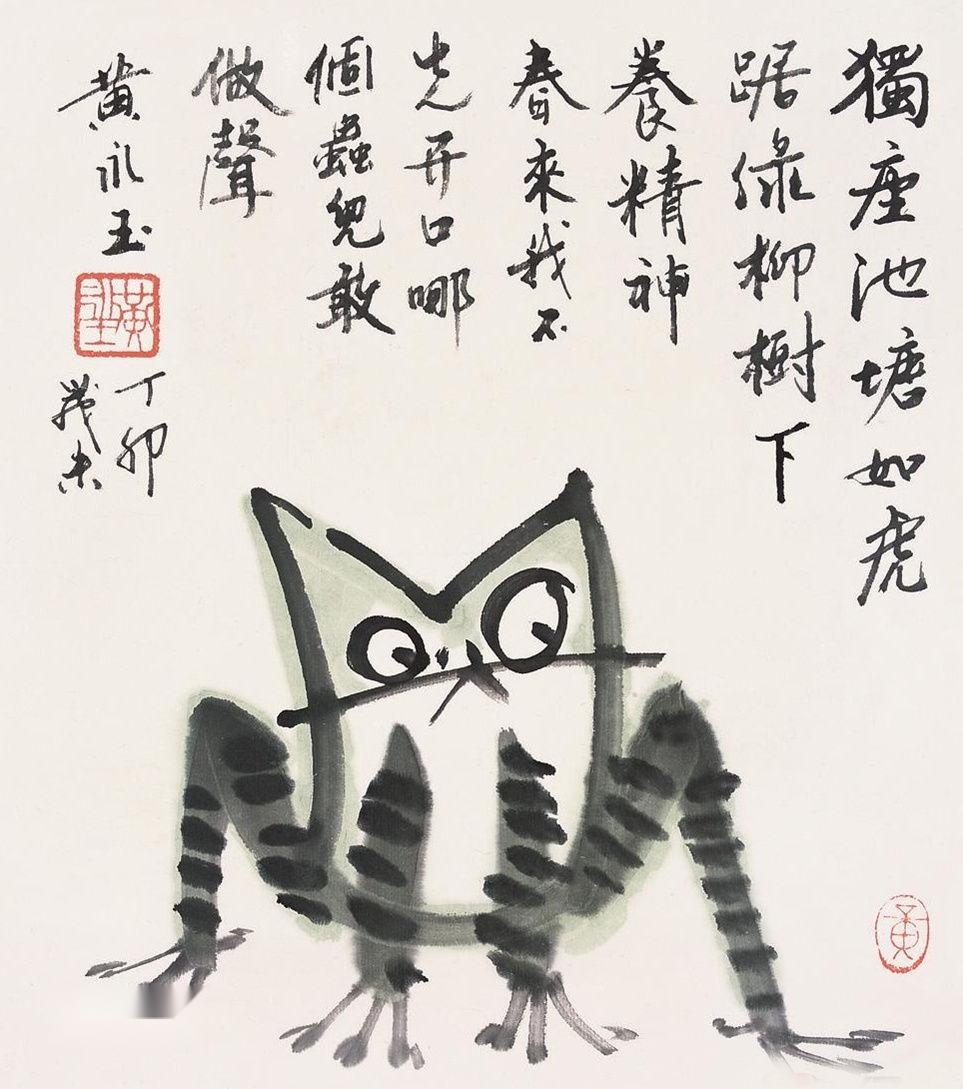 獨座池塘如虎
踞绿柳樹下
養精神
春來我不
先开口哪
個蟲兒敢
做聲
黄永玉
丁卯
歲末
黄